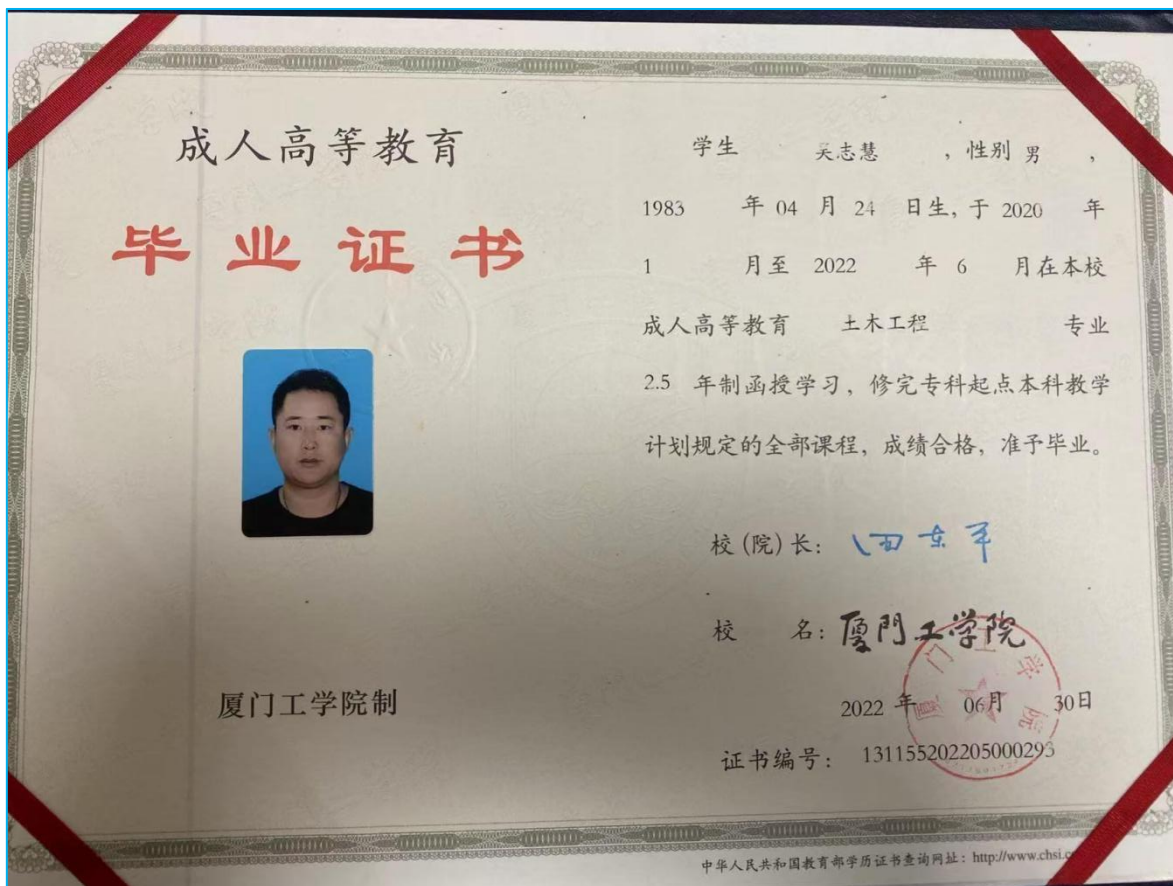 成人高等教育
毕业证书
厦门工学院制
学生 吴志慧 ,性别 男 ,
1983 年 04 月 24 日生,于 2020 年
1 月至 2022 年 6 月在本校
成人高等教育 土木工程 专业
2.5 年制函授学习,修完专科起点本科教学
计划规定的全部课程,成绩合格,准予毕业。
校(院)长:
校 名:厦門工学院
厦门工学院
2022 年 06月 30日
证书编号: 131155202205000293
中华人民共和国教育部学历证书查询网址:http://www.chsi.c